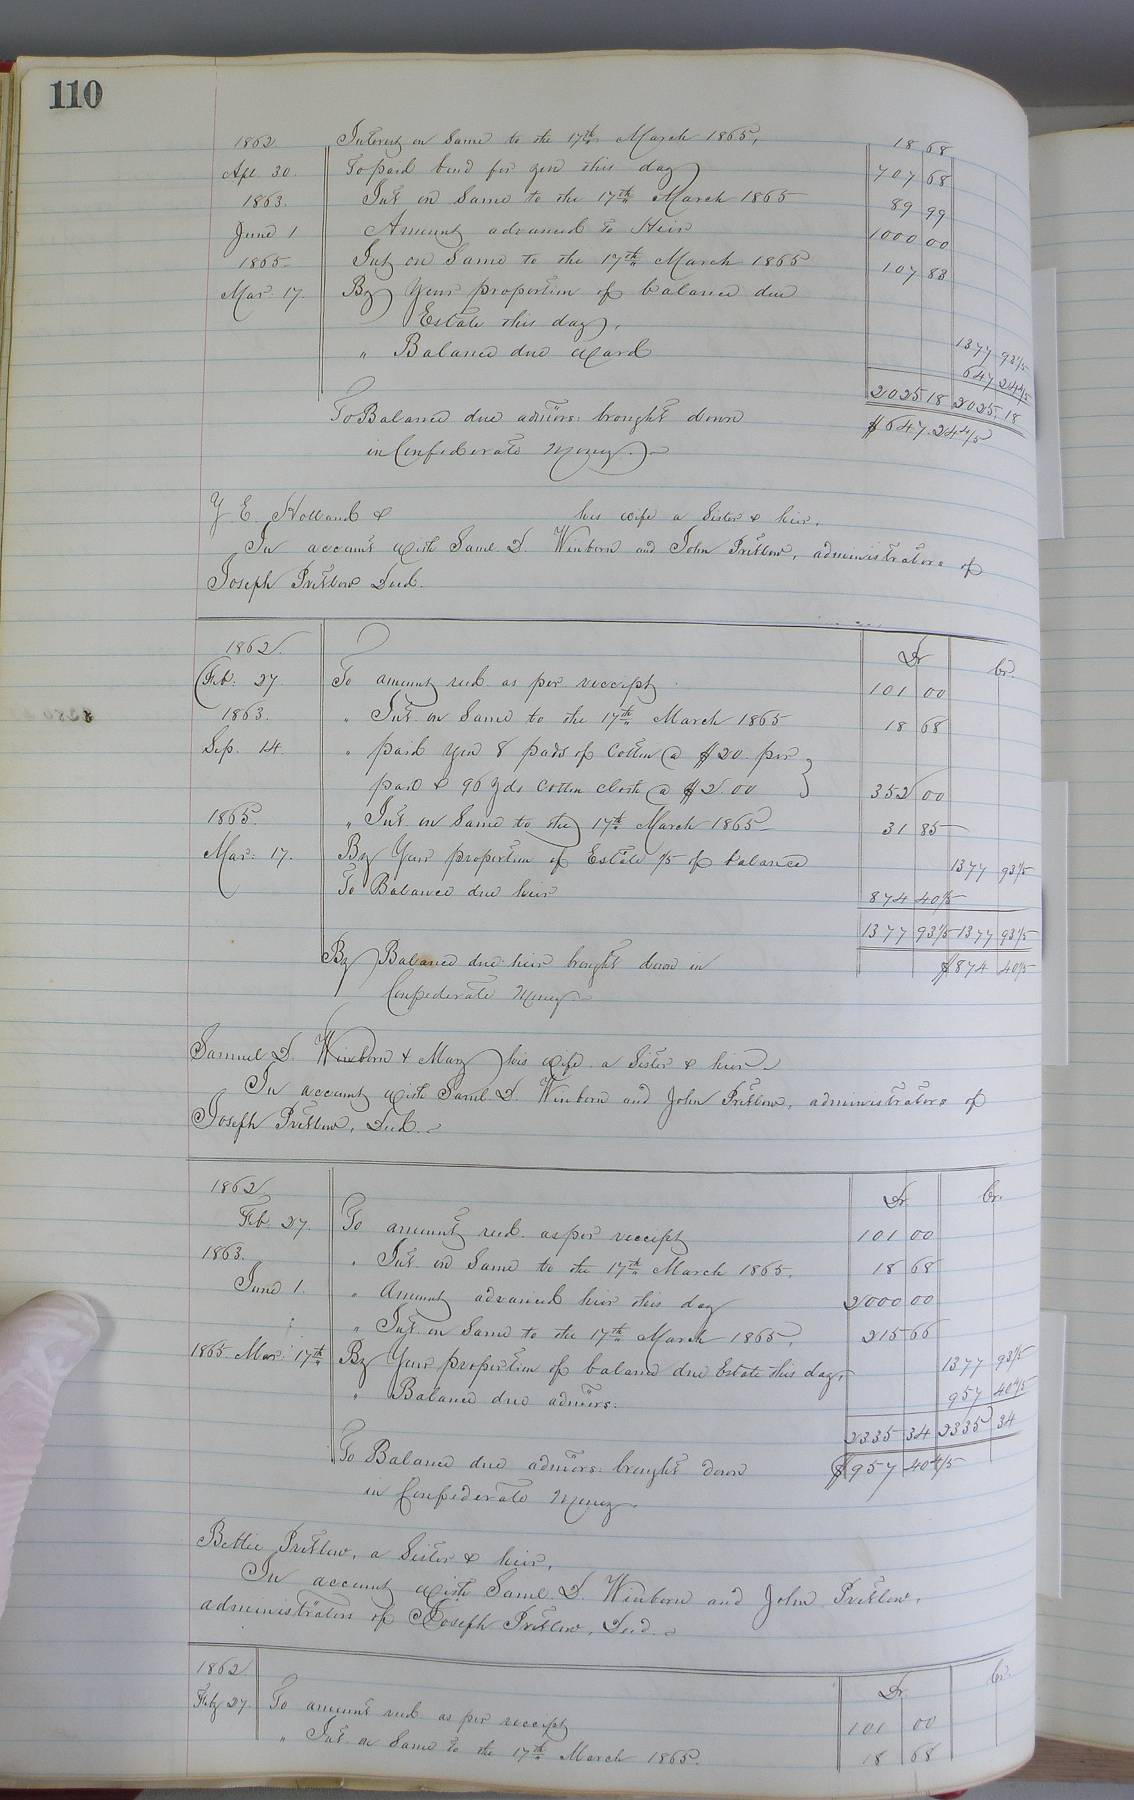 110
1862 Interest on Same to the 17th March 1865, 18 68
Apl 30. To paid bond for you this day 707 68
1863. Int on Same to the 17th March 1865 89 99
June 1 Amount advanced to Heir 1000 00
1865 Int on Same to the 17th March 1865 107 83
Mar. 17. By Your proportion of balance due
Estate this day, 1377 93 1/5
" Balance due 647 24 4/5
2025 18 2025 18
To Balance due admors: brought down $647.24 4/5
in Confederate Money.
Y E. Holland & his wife a Sister & heir.
In account with Saml. D. Winborn and John Pretlow, administrators of
Joseph Pretlow Decd.
1862. Dr Cr.
Feb: 27. To amount recd. as per receipt. 101 00
1863. " Int on Same to the 17th March 1865 18 68
Sep. 14. " paid you 8 pads of Cotton @ $20. per
pad & 96 yds Cotton cloth @ $2.00 } 352 00
1865. " Int on Same to the 17th March 1865 31 85
Mar: 17. By Your proportion of Estate 1/5 of balance 1377 93 1/5
To Balance due heir 874 40 1/5
1377 93 1/5 1377 93 1/5
By Balance due heir brought down in $874 40 1/5
Confederate Money
Samuel D. Winborn & Mary his wife. a Sister & heir.
In account with Saml D. Winborn and John Pretlow, administrators of
Joseph Pretlow, Decd.
1862 Dr. Cr.
Feb. 27. To amount recd. as per receipt 101 00
1863. " Int on Same to the 17th March 1865, 18 68
June 1. " Amount advanced heir this day 2000 00
" Int on Same to the 17th March 1865, 215 66
1865 Mar: 17th By Your proportion of balance due Estate this day, 1377 93 1/5
" Balance due admors: 957 40 4/5
2335 34 2335 34
To Balance due admors: brought down $957 40 4/5
in Confederate Money.
Bettie Pretlow, a Sister & heir,
In account with Saml. D. Winborn and John Pretlow,
administrators of Joseph Pretlow, Decd.
1862. Dr Cr.
Feby 27. To amount recd as per receipt 101 00
" Int. on Same to the 17th March 1865. 18 68